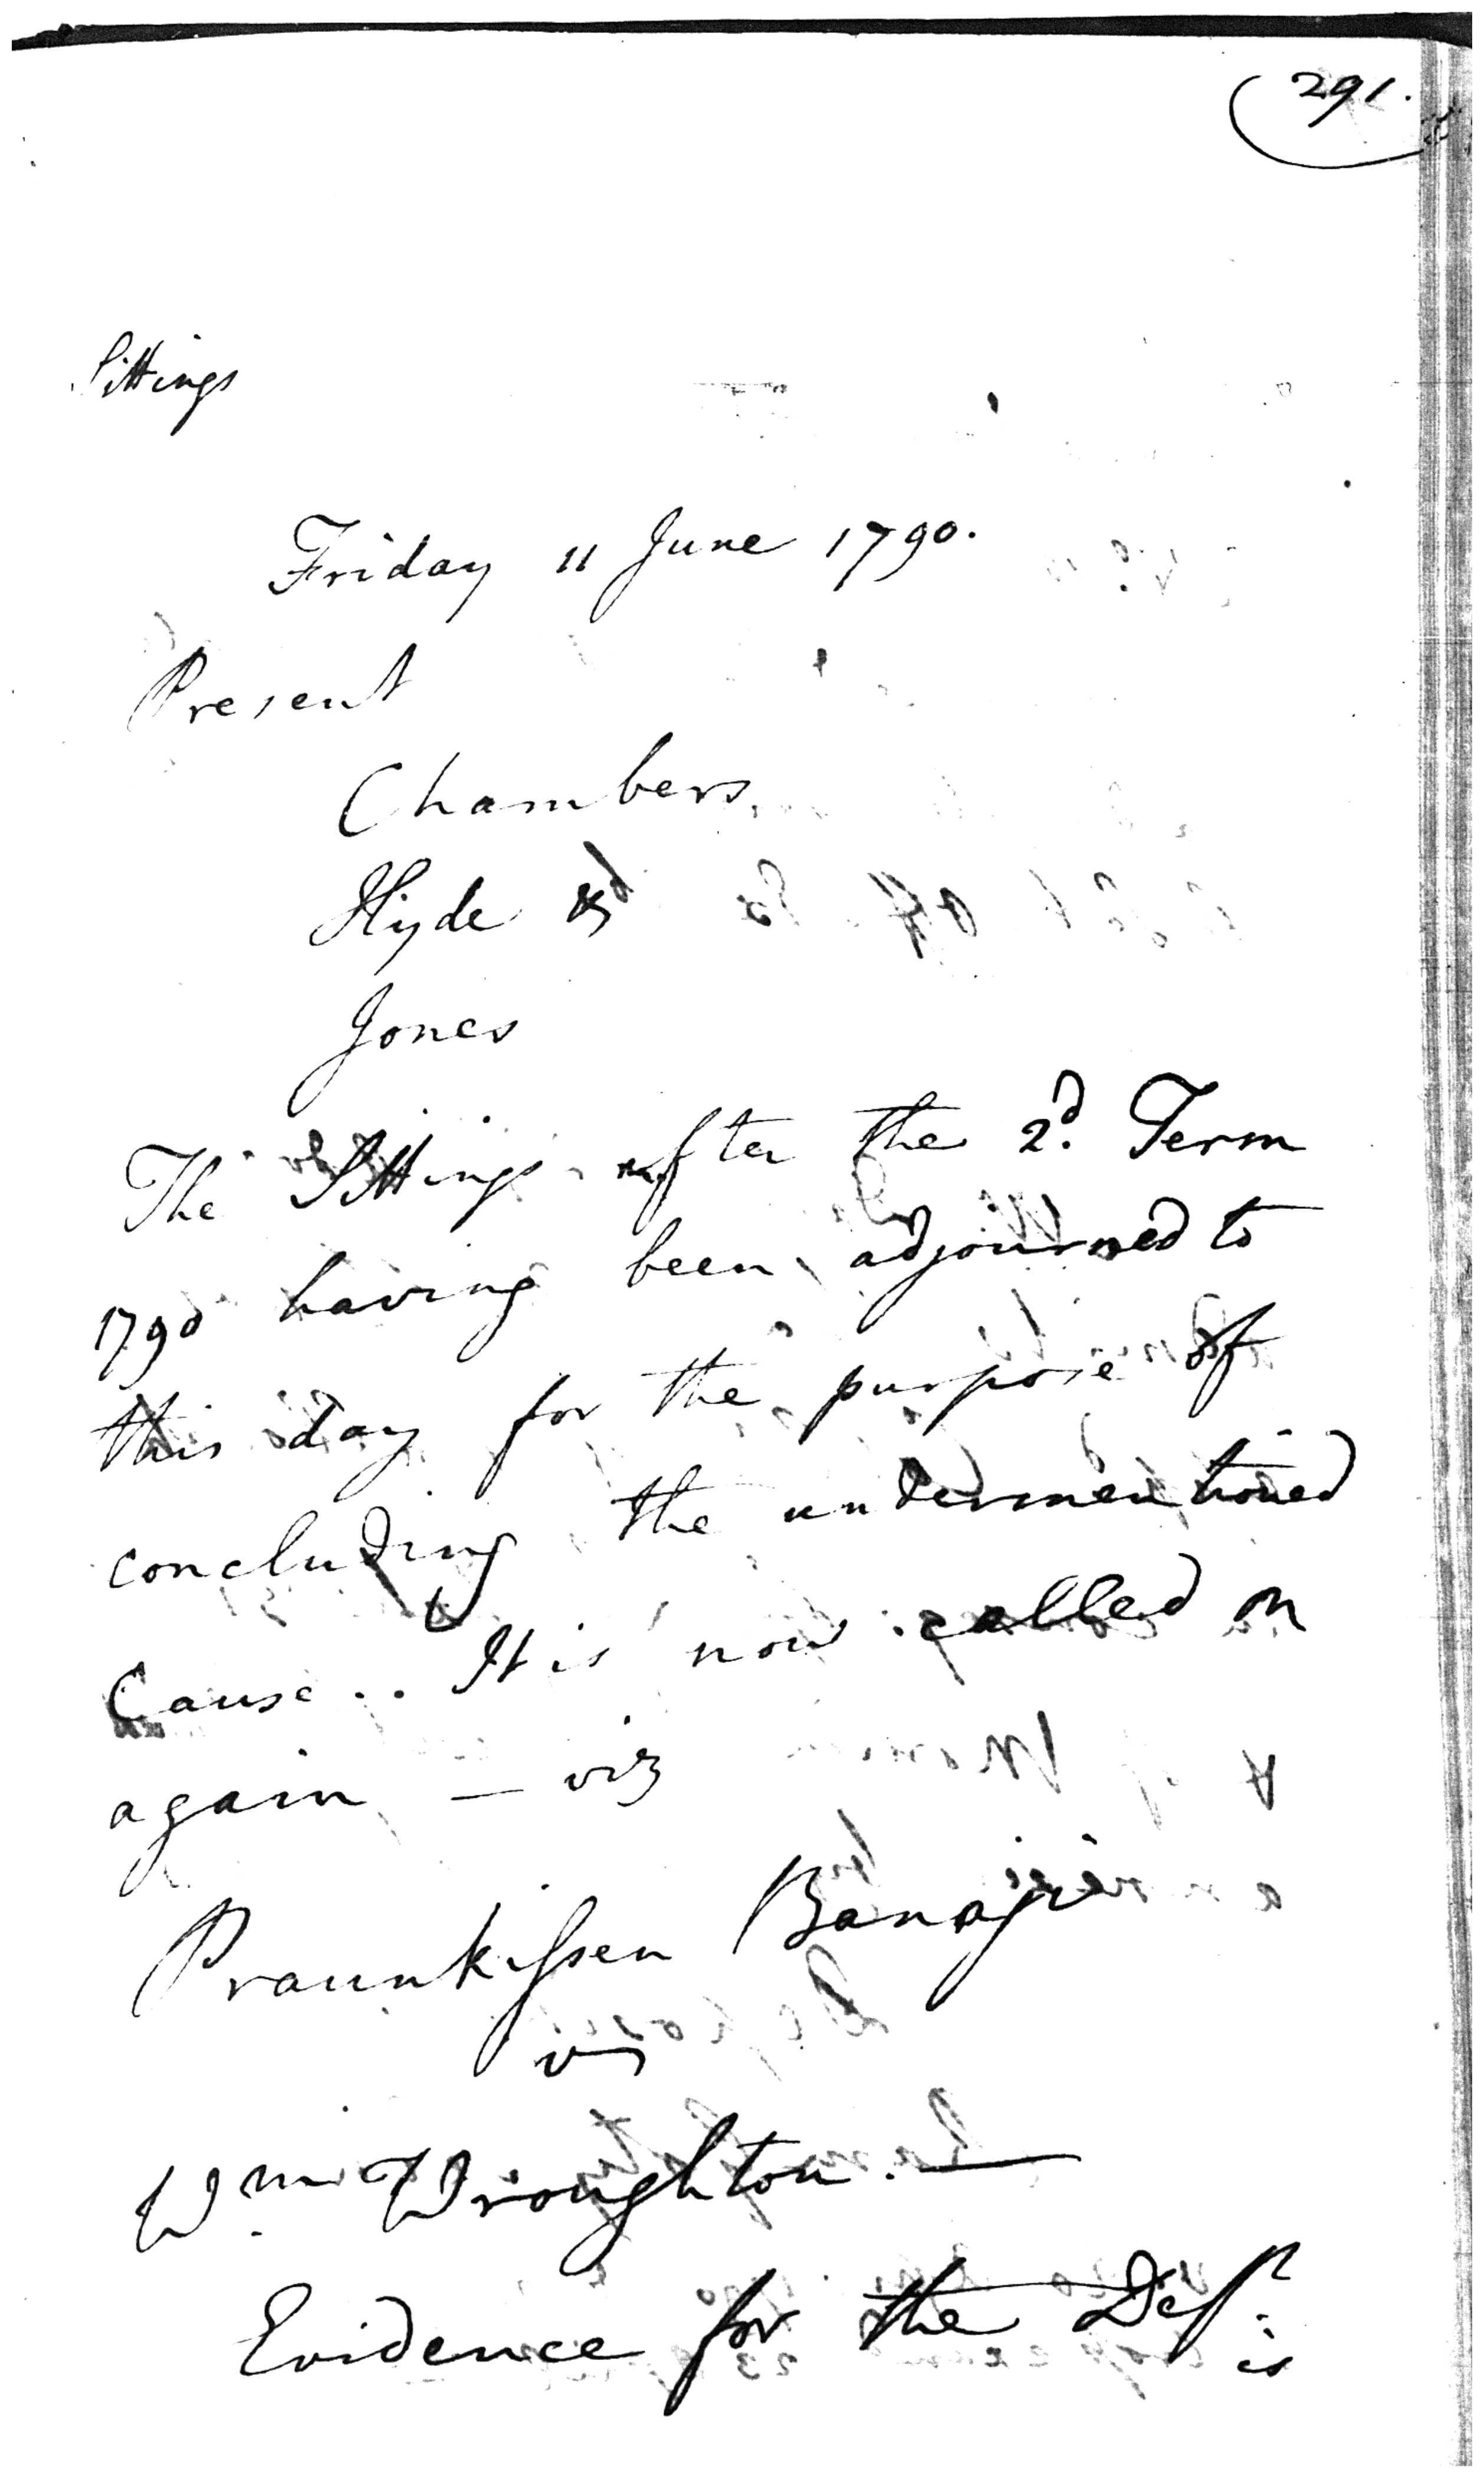 291.
Sittings
Friday 11 June 1790.
Present
Chambers
Hyde &
Jones
The Sittings after the 2d. Term
1790 having been adjourned to
this day for the purpose of
concluding the undermentioned
Cause .. It is now called on
again — viz
Praunkissen Banajie
vs
Wm. Wroughton. —
Evidence for the Deft.
is